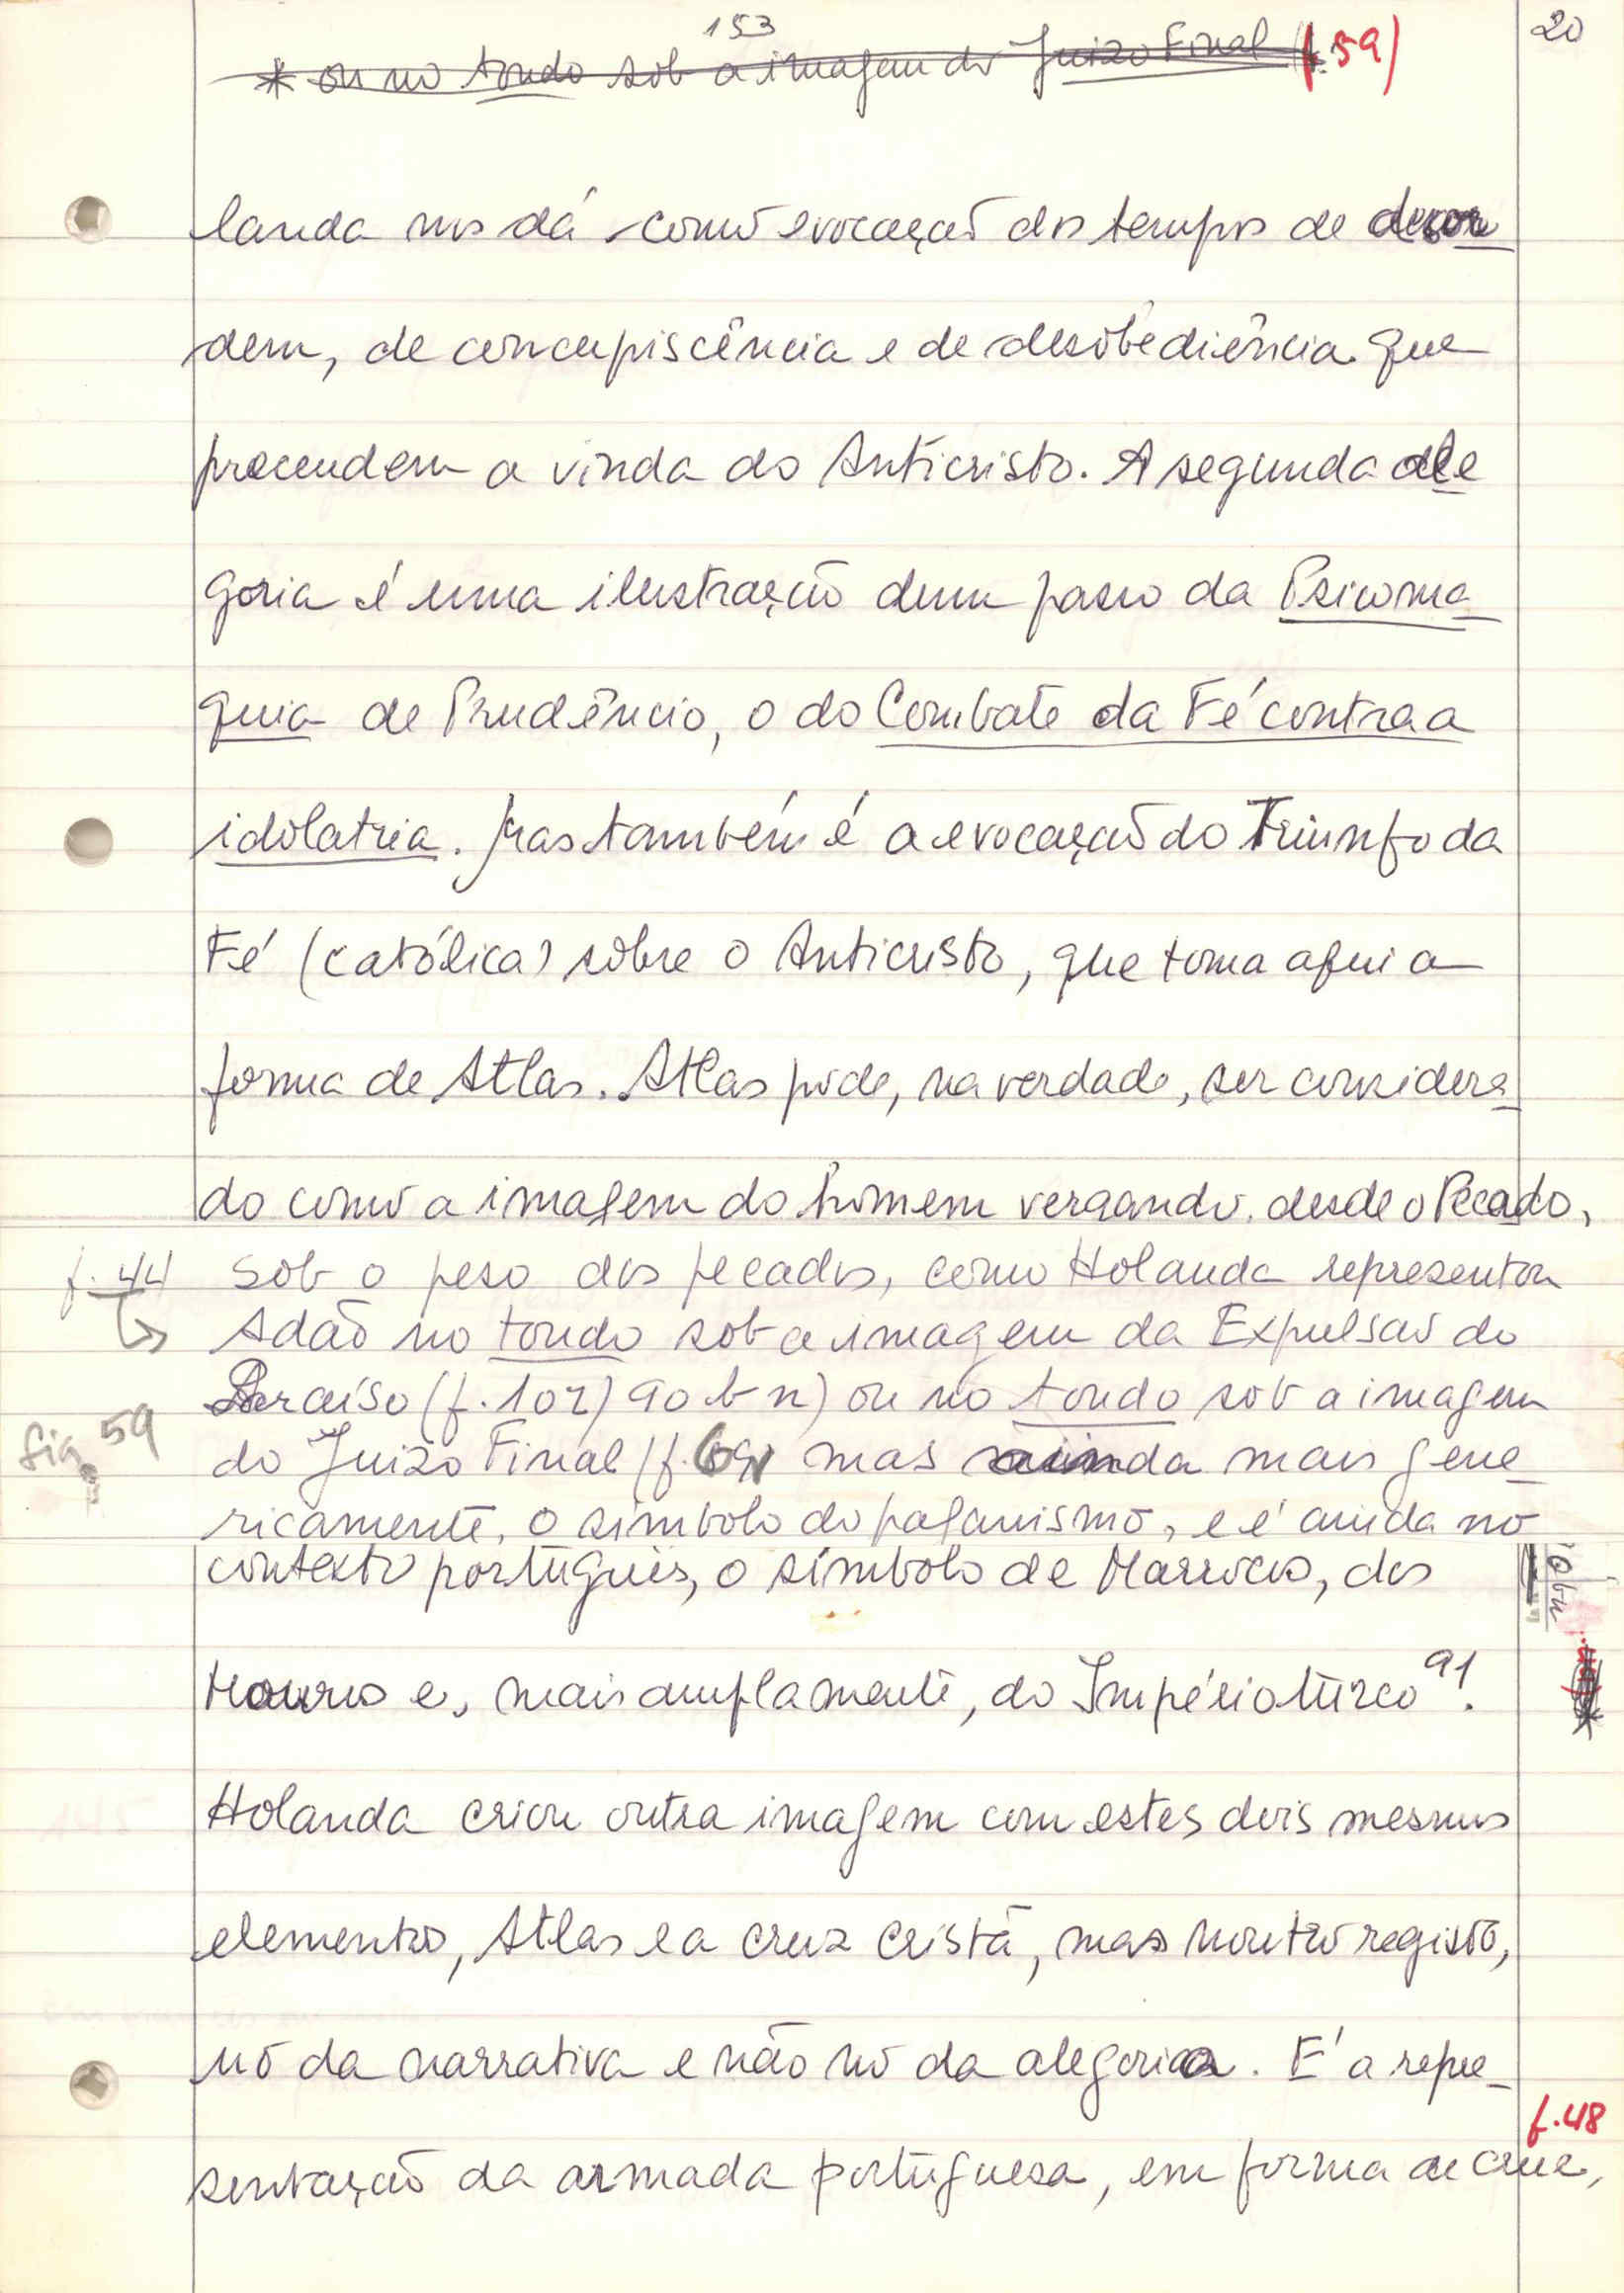 153
20
* ou no tondo sob a imagem do Juizo Final (f. 59)
landa nos dá como evocação dos tempos de desor
dem, de concupiscência e de desobediência que
precendem a vinda do Anticristo. A segunda ale
goria é uma ilustração dum passo da Psicoma
quia de Prudêncio, o do Combate da Fé contra a
idolatria. Mas também é a evocação do Triunfo da
Fé (católica) sobre o Anticristo, que toma aqui a
forma de Atlas. Atlas pode, na verdade, ser considera
do como a imagem do homem vergando, desde o Pecado,
f. 44 sob o peso dos pecados, como Holanda representou
Adão no tondo sob a imagem da Expulsão do
Paraíso (f. 10r) 90 b n) ou no tondo sob a imagem
fig 59 do Juizo Final (f. mas ainda mais gene
ricamente, o símbolo do paganismo, e é ainda no
contexto português, o símbolo de Marrocos, dos
Mouros e, mais amplamente, do Império turco 91.
Holanda criou outra imagem com estes dois mesmos
elementos, Atlas e a cruz cristã, mas noutro registo,
no da narrativa e não no da alegoria. É a repre-
f. 48
sentação da armada portuguesa, em forma de cruz,